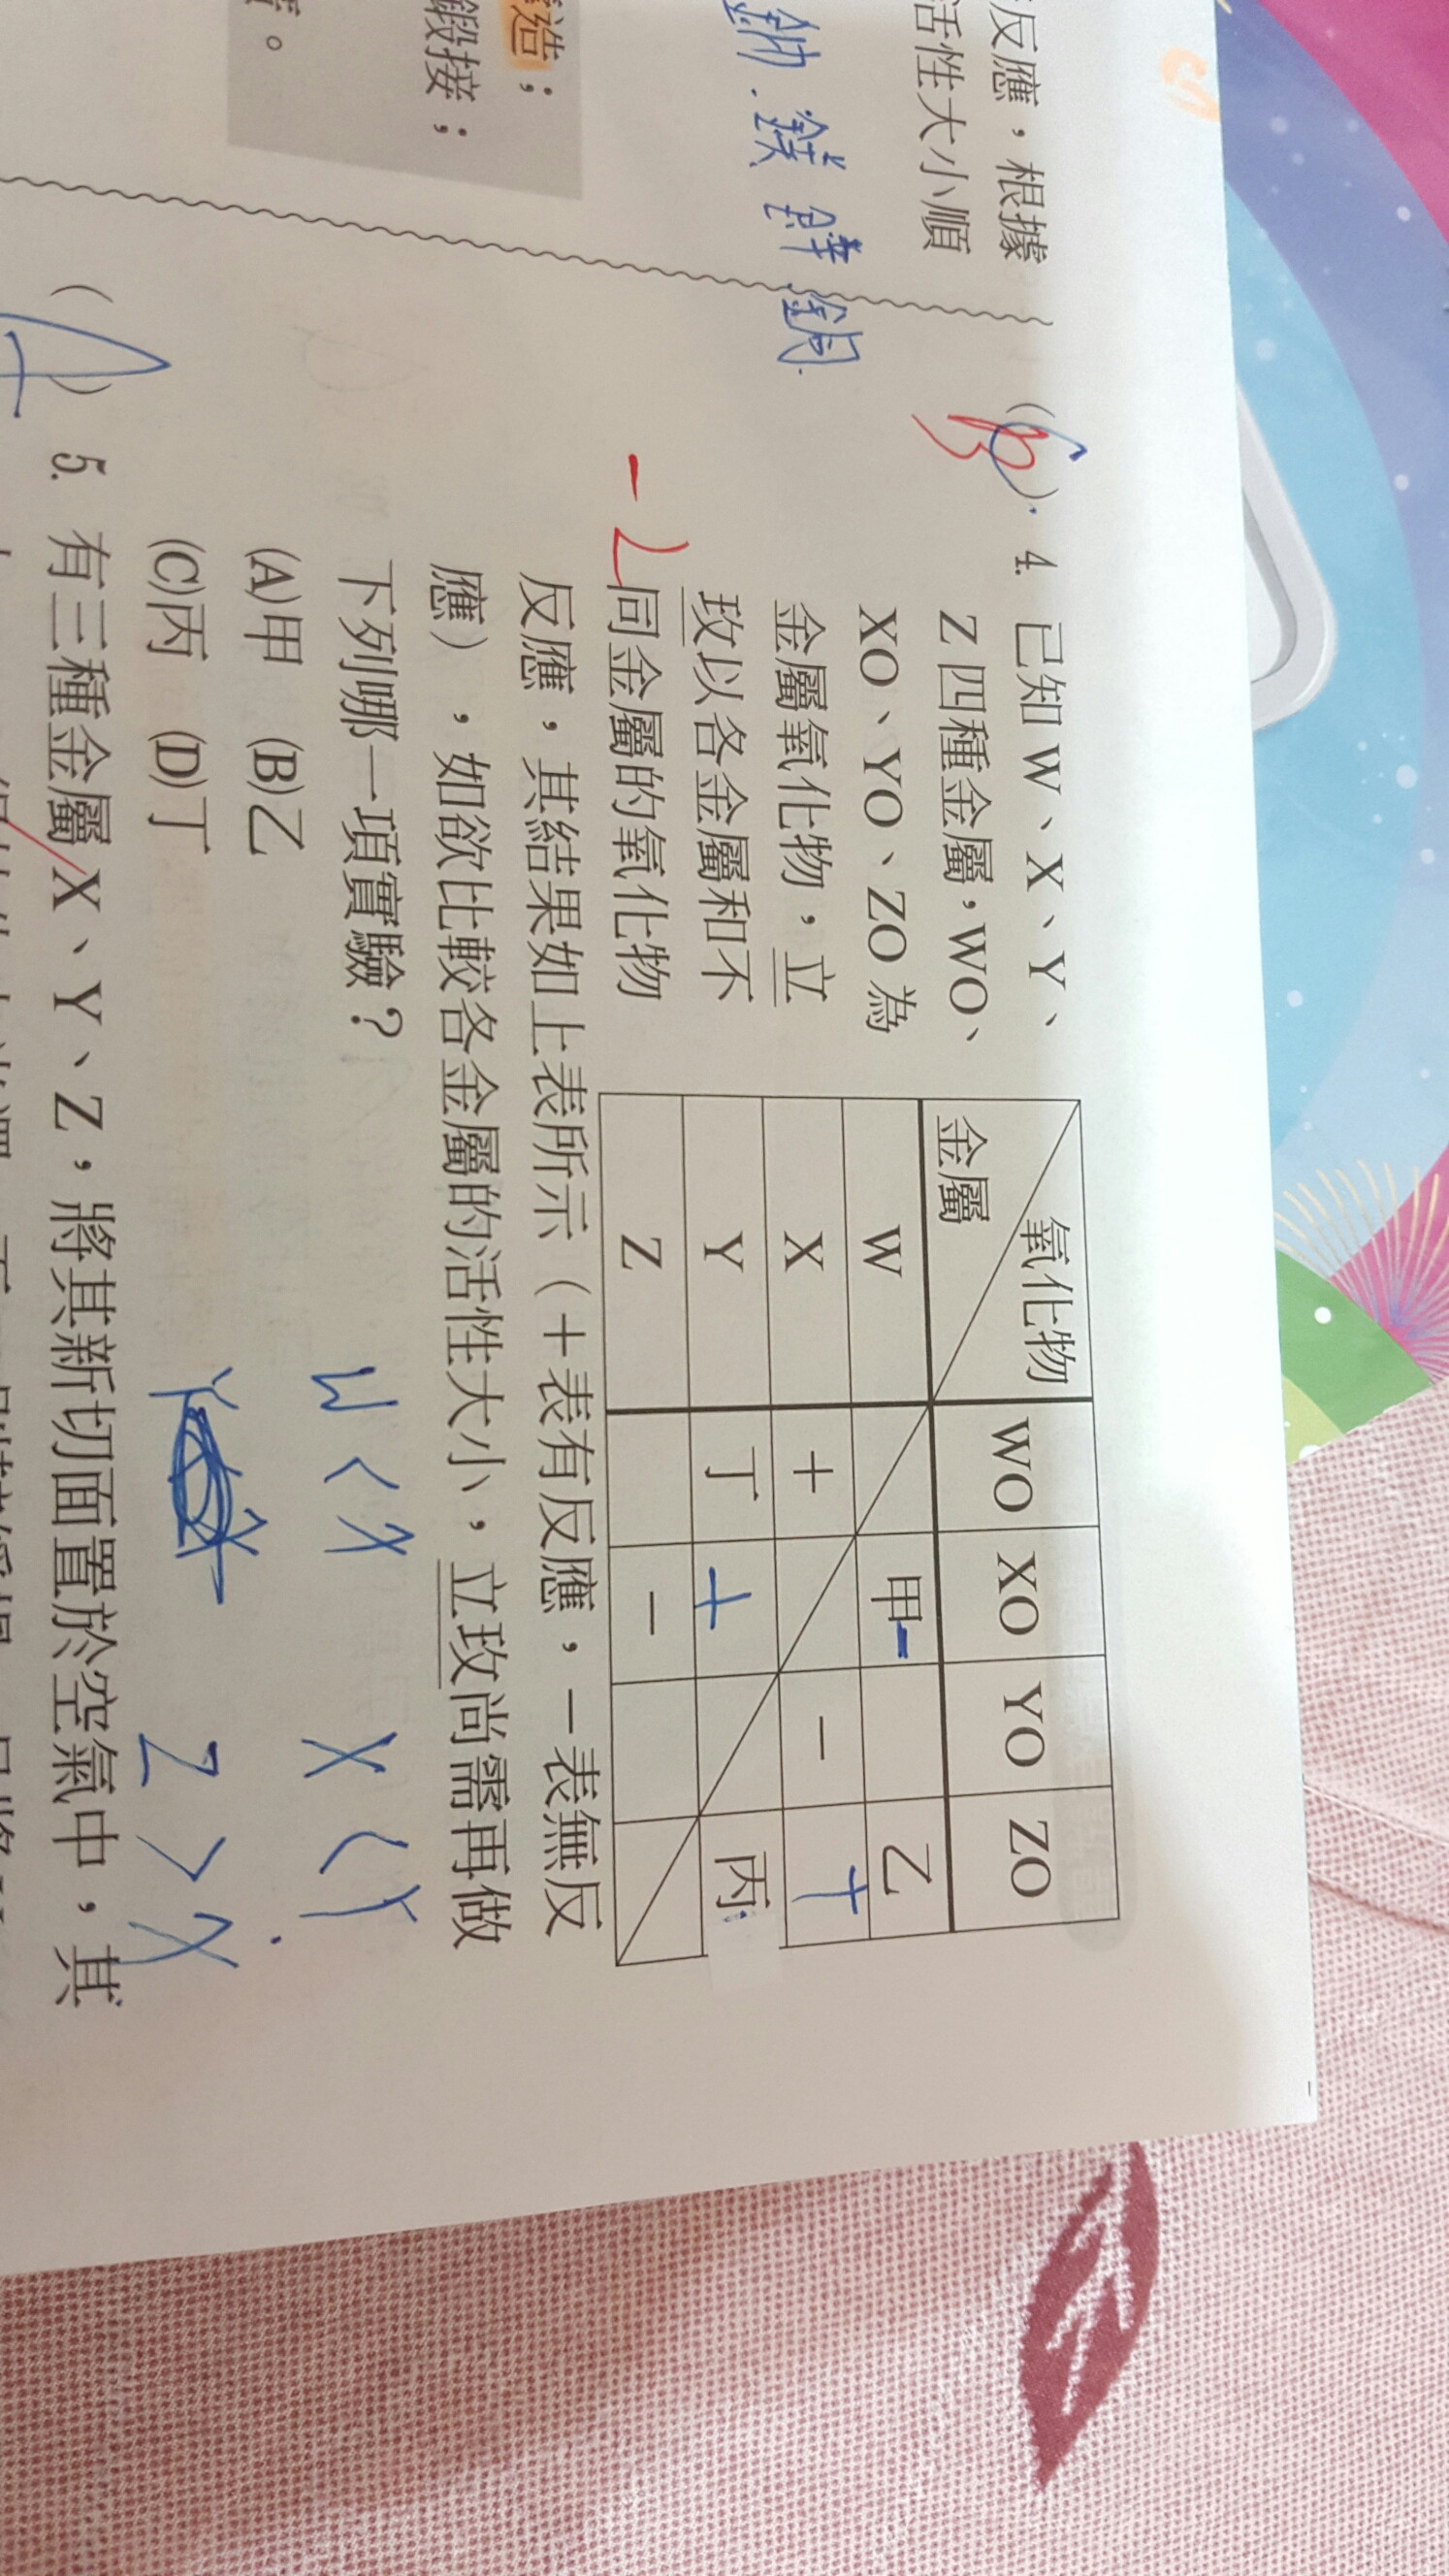 反應，根據
活性大小順
鈉.鎂 鋅 銅.
造；
鍛接；
。
(B). 4. 已知 W、X、Y、
Z 四種金屬，WO、
XO、YO、ZO 為
金屬氧化物，立
玫以各金屬和不
同金屬的氧化物
反應，其結果如上表所示（＋表有反應，－表無反
應），如欲比較各金屬的活性大小，立玫尚需再做
下列哪一項實驗？
(A)甲 (B)乙
(C)丙 (D)丁
氧化物 WO XO YO ZO
金屬
W 甲- 乙
X ＋ － +
Y 丁 + 丙
Z －
-2
W < X
X < Y
Y
Z > X
( ) 5. 有三種金屬 X、Y、Z，將其新切面置於空氣中，其